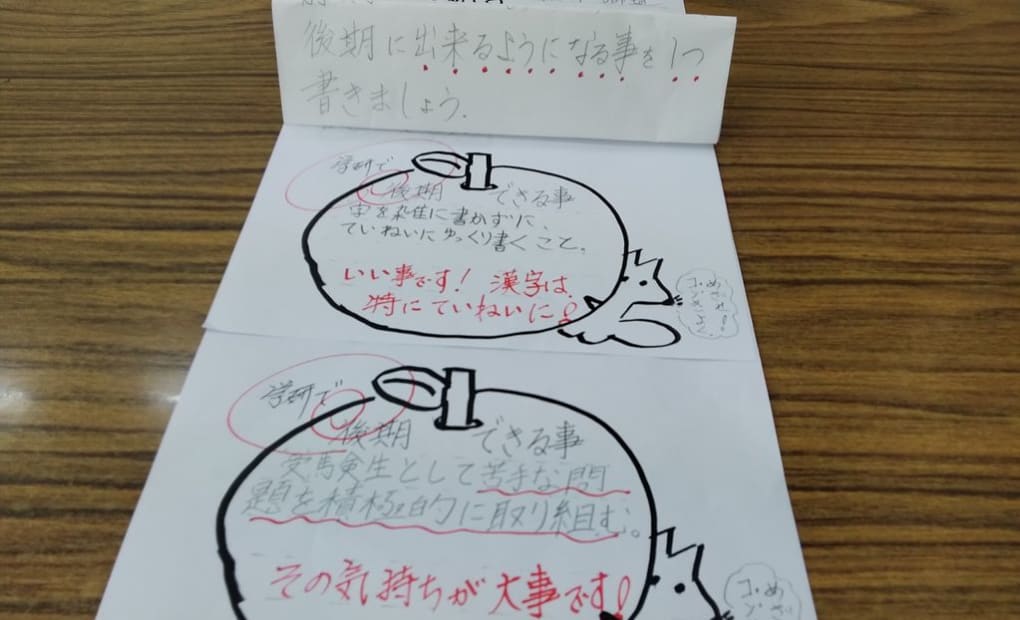 後期に出来るようになる事を1つ
書きましょう。
学研で
後期 できる事
字を雑に書かずに、
ていねいにゆっくり書くこと。
いい事です! 漢字は、
特にていねいに!
めざせ!
学研で
後期 できる事
受験生として苦手な問
題を積極的に取り組む。
その気持ちが大事です!